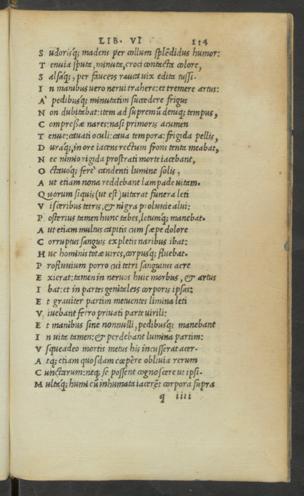 LIB. VI 114
S udorisq; madens per collum splēdidus humor:
T enuia sputa, minuta, croci contacta colore,
S alsaq;, per fauces rauca uix edita tussi.
I n manibus uero nerui trahere: et tremere artus:
A' pedibusq; minutatim succedere frigus
N on dubitabat: item ad supremū deniq; tempus,
C ompressæ nares: nasi primoris acumen
T enue: cauati oculi: caua tempora: frigida pellis,
D uraq;, in ore iacens rectum: frons tenta meabat,
N ec nimio rigida prostrati morte iacebant,
O ctauoq; fere' candenti lumine solis,
A ut etiam nona reddebant lampade uitam.
Q uorum siquis (ut est) uitarat funera leti
V isceribus tetris, & nigra proluuie alui;
P osterius tamen hunc tabes, letumq; manebat.
A ut etiam multus capitis cum sæpe dolore
C orruptus sanguis expletis naribus ibat:
H uc hominis totæ uires, corpusq; fluebat.
P rofluuium porro cui tetri sanguinis acre
E xierat; tamen in neruos huic morbus, & artus
I bat: et in partes genitales corporis ipsas;
E t grauiter partim metuentes limina leti
V iuebant ferro priuati parte uirili:
E t manibus sine nonnulli, pedibusq; manebant
I n uita tamen: & perdebant lumina partim:
V squeadeo mortis metus his incusserat acer.
A tq; etiam quosdam cœpere obliuia rerum
C unctarum: neq; se possent cognoscere ut ipsi.
M ultaq; humi cū inhumata iacerēt corpora supra
q iiii